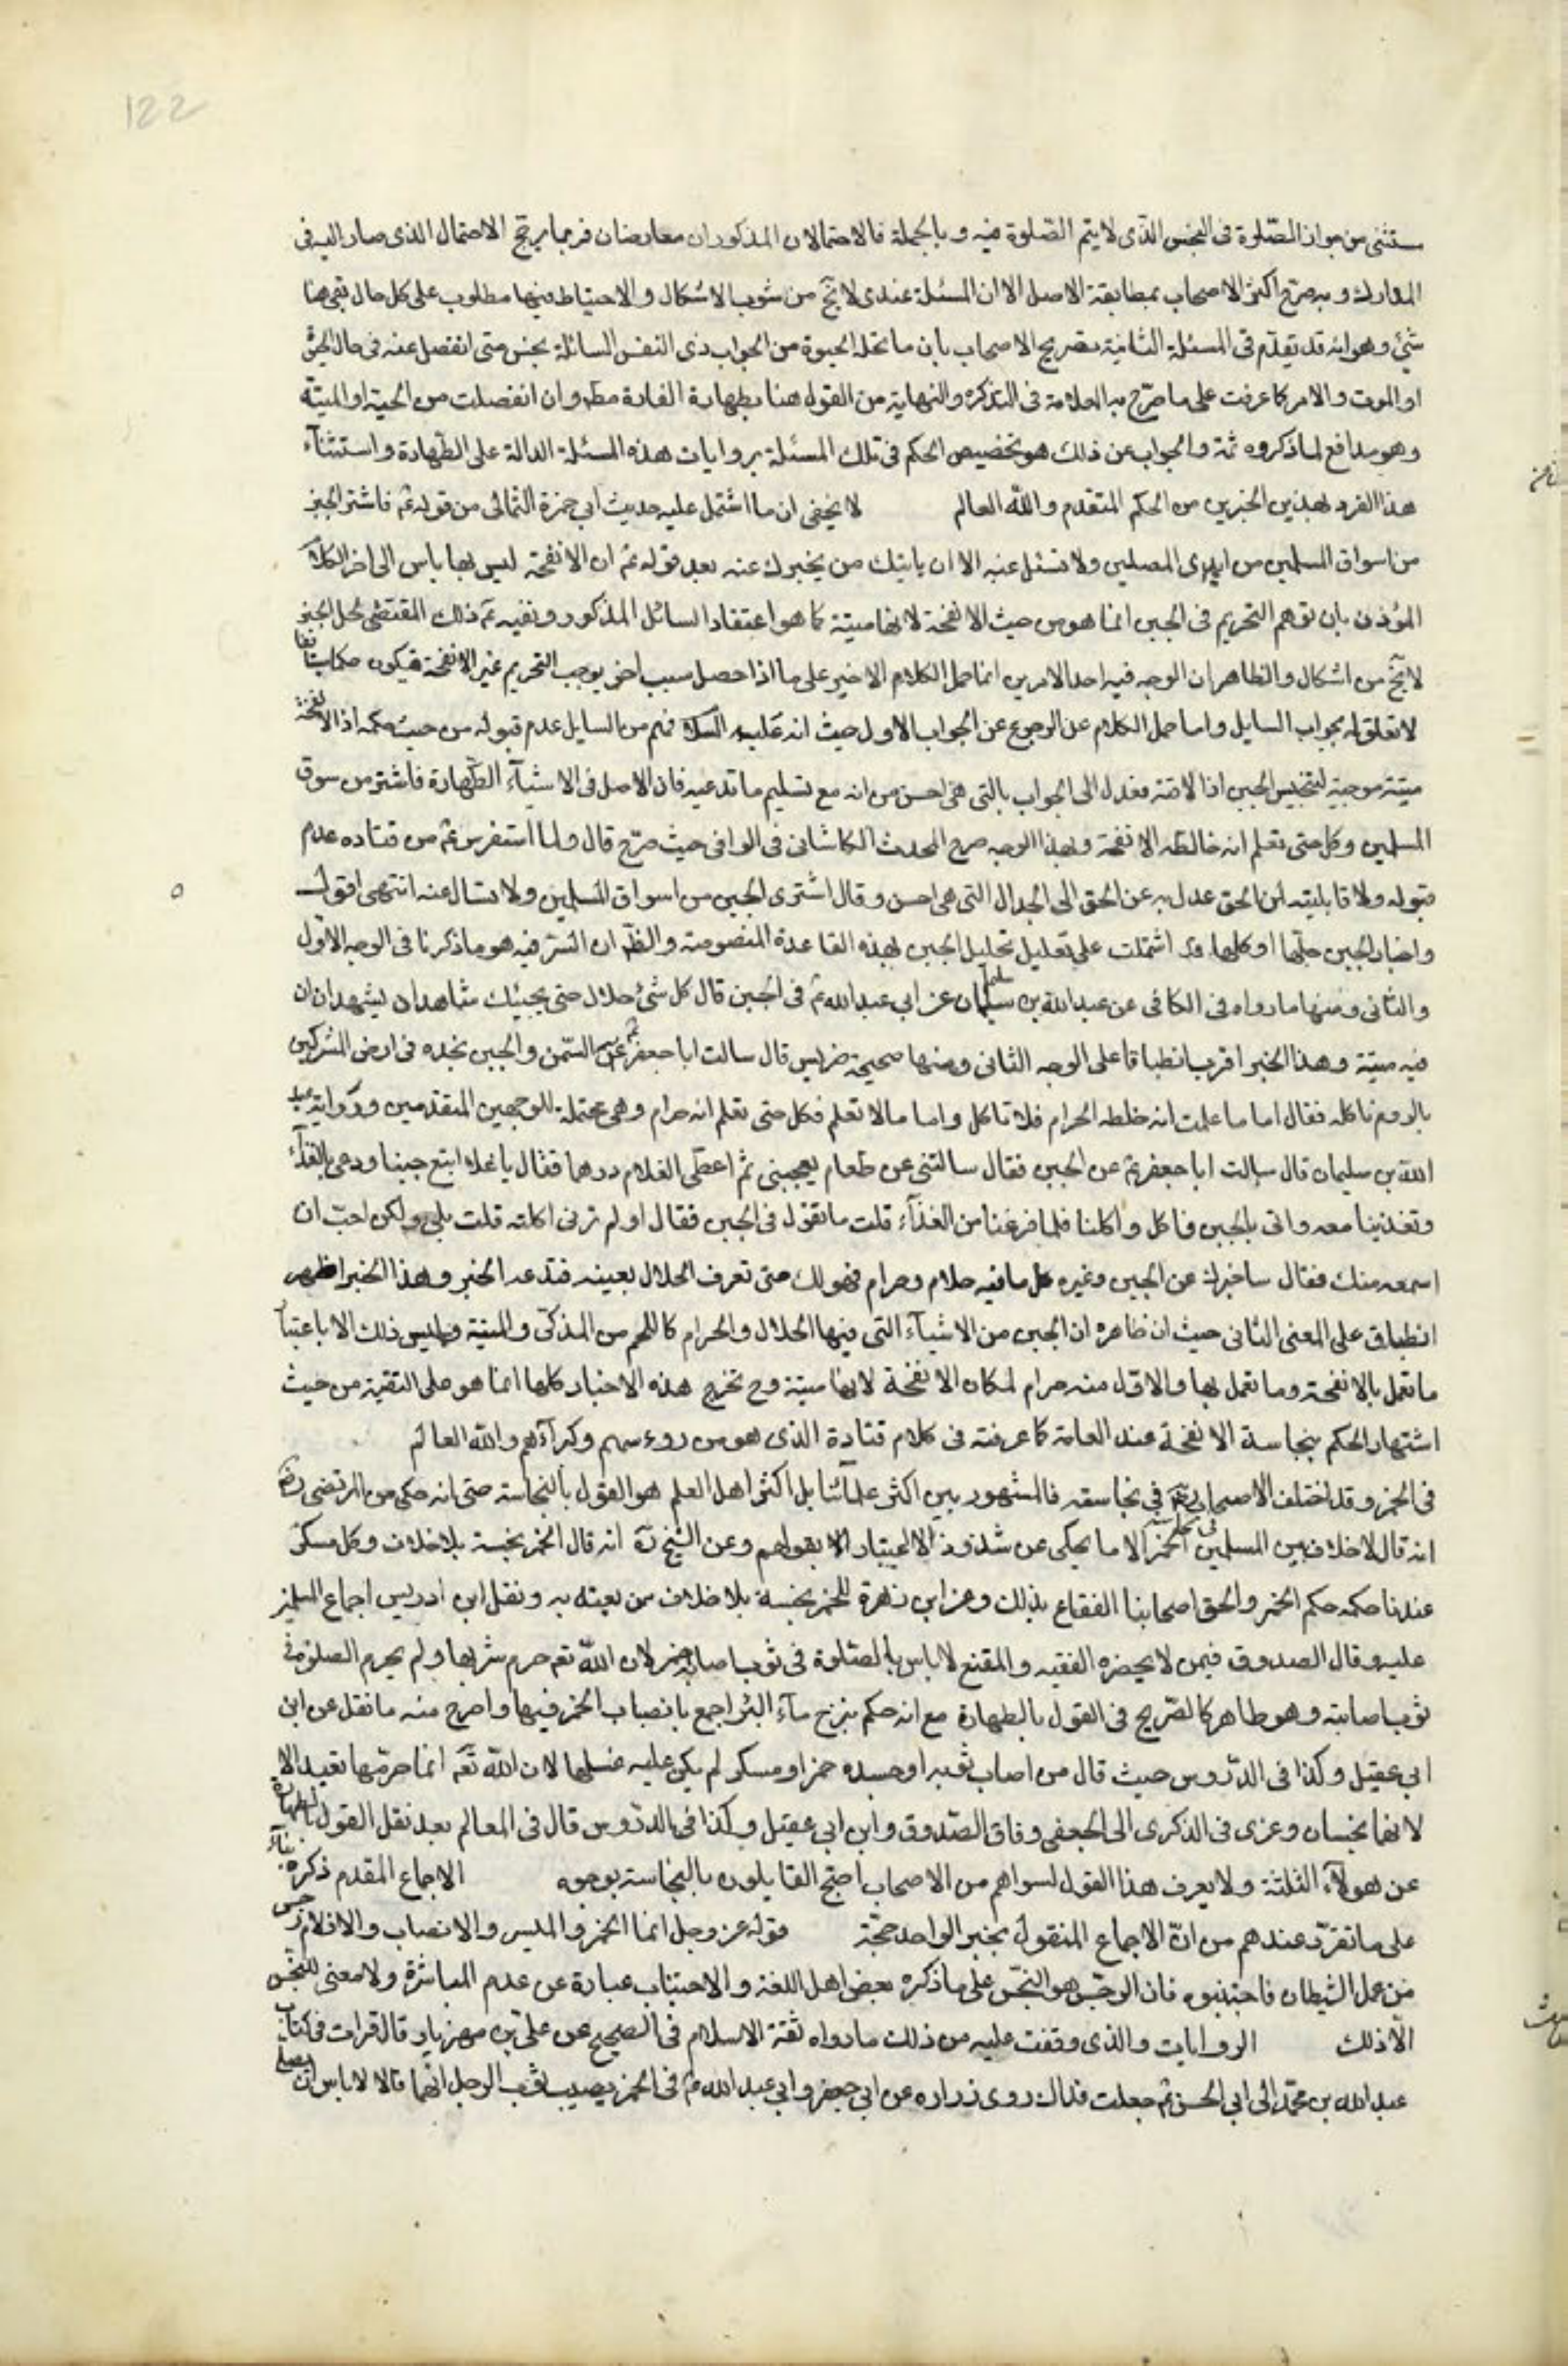 122
ستثنى من جواز الصّلوة فى النجس الذى لا يتم الصّلوة فيه و بالجملة فالاحتمالان المذكوران معارضان فربما يرجح الاحتمال الذى صار اليه فى
المدارك و به صرّح اكثر الاصحاب بمطابقة الاصل الا ان المسئلة عندى لا تخ من شوب الاشكال و الاحتياط فيها مطلوب على كل حال بقى هنا
شئ وهو انه قد تقدّم فى المسئلة الثانية تصريح الاصحاب بان ما تحله الحيوة من الحيوان ذى النفس السائلة نجس متى انفصل عنه فى حال الحيوة
او الموت و الامر كما عرفت على ما صرّح به العلامة فى التذكره والنهاية من القول هنا بطهارة الفارة مط وان انفصلت من الحية او الميتة
وهو مدافع لما ذكروه ثمة و الجواب عن ذلك هو تخصيص الحكم فى تلك المسئلة بروايات هذه المسئلة الدالة على الطّهارة و استثنآء
هذا الفرد بهذين الخبرين من الحكم المتقدم والله العالم لا يخفى ان ما اشتمل عليه حديث ابى حمزة الثمالى من قوله ع فاشتر الجبن
من اسواق المسلمين من ايدى المصلين ولا تسئل عنه الا ان ياتيك من يخبرك عنه بعد قوله ع ان الانفحة ليس بها باس الى اخر الكلام
المؤذن بان توهم التحريم فى الجبن انما هو من حيث الانفحة لانها ميتة كما هو اعتقاد السائل المذكور و نفيه ع ذلك المقتضى لحل الجبن
لا يخ من اشكال و الظاهر ان الوجه فيه احد الامرين اما حمل الكلام الاخير على ما اذا حصل سبب اخر يوجب التحريم غير الانفحة فيكون
لا تعلق له بجواب السايل و اما حمل الكلام على الرجوع عن الجواب الاول حيث انه عليه السلام فهم من السايل عدم قبوله من حيث حكمه اذ الانفحة
ميتة موجبة لتنجيس الجبن اذا لاقته فعدل الى الجواب بالتى هى احسن من انه مع تسليم ما تدعيه فان الاصل فى الاشيآء الطّهارة فاشتر من سوق
المسلمين وكل حتى تعلم انه خالطه الانفحة و بهذا الوجه صرح المحدث الكاشانى فى الوافى حيث صرّح قال و لما استفرس ع من قتاده عدم
قبوله ولا قابليته لمر الحق عدل به عن الحق الى الجدال التى هى احسن و قال اشترى الجبن من اسواق المسلمين ولا تسال عنه انتهى اقول
و اخبار الجبن جلّها او كلها قد اشتملت على تعليل تحليل الجبن بهذه القاعدة المنصوصة و الظّ ان السّر فيه هو ما ذكرنا فى الوجه الاوّل
والثانى و منها ما رواه فى الكافى عن عبد الله بن سليمان عن ابى عبد الله ع فى الجبن قال كل شئ حلال حتى يجيئك شاهدان يشهدان ان
فيه ميتة و هذا الخبر اقرب انطباقا على الوجه الثانى ومنها صحيحة ضريس قال سالت ابا جعفر ع عن السّمن والجبن نجده فى ارض المشركين
بالروم ناكله فقال اما ما علمت انه خلطه الحرام فلا تاكل و اما ما لا تعلم فكل حتى تعلم انه حرام و هى محتملة للوجهين المتقدمين و رواية عبد
الله بن سليمان قال سالت ابا جعفر ع عن الجبن فقال سالتنى عن طعام يعجبنى ثم اعطى الغلام درهما فقال يا غلام ابتع جبنا و دعى بالغذآء
و تغذينا معه و اتى بالجبن فاكل و اكلنا فلما فرغنا من الغذآء قلت ما تقول فى الجبن فقال او لم ترنى اكلته قلت بلى و لكن احبّ ان
اسمعه منك فقال ساخبرك عن الجبن وغيره كل ما فيه حلام وحرام فهو لك حتى تعرف الحلال بعينه فتدعه الخبر و هذا الخبر اظهر
انطباق على المعنى الثانى حيث ان ظاهره ان الجبن من الاشيآء التى فيها الحلال و الحرام كاللحم من المذكّى و الميتة و ليس ذلك الا باعتبار
ما تعمل بالانفحة و ما تعمل بها و الاوّل منه حرام لمكان الانفحة لانها ميتة وح تخرج هذه الاخبار كلها انما هو على التقية من حيث
اشتهار الحكم بنجاسة الانفحة عند العامة كما عرفته فى كلام قتادة الذى هو من رؤسهم و كبرآءهم والله العالم
فى الخمر و قد اختلف الاصحاب رض فى نجاسته فالمشهور بين اكثر علمآئنا بل اكثر اهل العلم هو القول بالنجاسة حتى انه حكى من المرتضى رض
انه قال لا خلاف بين المسلمين فى نجاسة الخمر الا ما يحكى عن شذوذ لا اعتبار بقولهم و عن الشيخ ره انه قال الخمر نجسة بلا خلاف و كل مسكر
عندنا حكمه حكم الخمر و الحق اصحابنا الفقاع بذلك و عن ابن زهرة الخمر نجسة بلا خلاف من يعتد به و نقل ابن ادريس اجماع المسلمين
عليه و قال الصدوق فيمن لا يحضره الفقيه و المقنع لا باس بالصّلوة فى ثوب اصابه خمر لان الله تع حرم شربها و لم يحرم الصلوة فى
ثوب اصابته و هو ظاهر كالصّريح فى القول بالطهارة مع انه حكم بنزح مآء البئر اجمع بانصباب الخمر فيها و اصرح منه ما نقل عن ابن
ابى عقيل و كذا فى الدّروس حيث قال من اصاب ثوبه او جسده خمر او مسكر لم يكن عليه غسلهما لان الله تع انما حرّمها تعبدا لا
لانهما نجسان و عزى فى الذكرى الى الجعفى وفاق الصّدوق و ابن ابى عقيل و كذا فى الدّروس قال فى المعالم بعد نقل القول بالطهارة
عن هولآء الثلثة ولا يعرف هذا القول لسواهم من الاصحاب احتج القايلون بالنجاسة بوجوه الاجماع المقدم ذكره بنآء
على ما تقرّر عندهم من انّ الاجماع المنقول بخبر الواحد حجّة قوله عز وجل انما الخمر و الميسر و الانصاب والازلام رجس
من عمل الشيطان فاجتنبوه فان الرجس هو النجس على ما ذكره بعض اهل اللغة و الاجتناب عبارة عن عدم المباشرة ولا معنى للنجس
الّا ذلك الروايات والذى وقفت عليه من ذلك ما رواه ثقة الاسلام فى الصحيح عن على بن مهزيار قال قرات فى كتاب
عبد الله بن محمّد الى ابى الحسن ع جعلت فداك روى زراره عن ابى جعفر و ابى عبد الله ع فى الخمر يصيب ثوب الرجل انّهما قالا لا باس ان يصلى